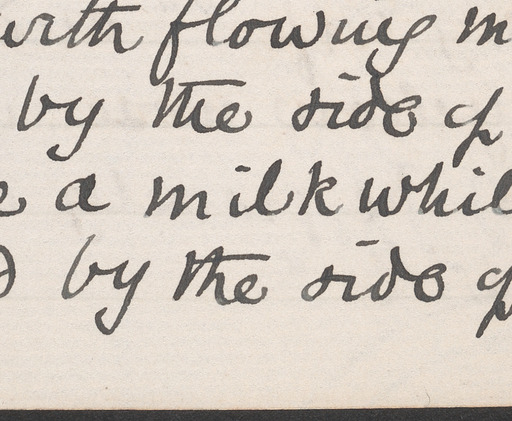 with flowing m
by the side of
e a milk whil
d by the side of